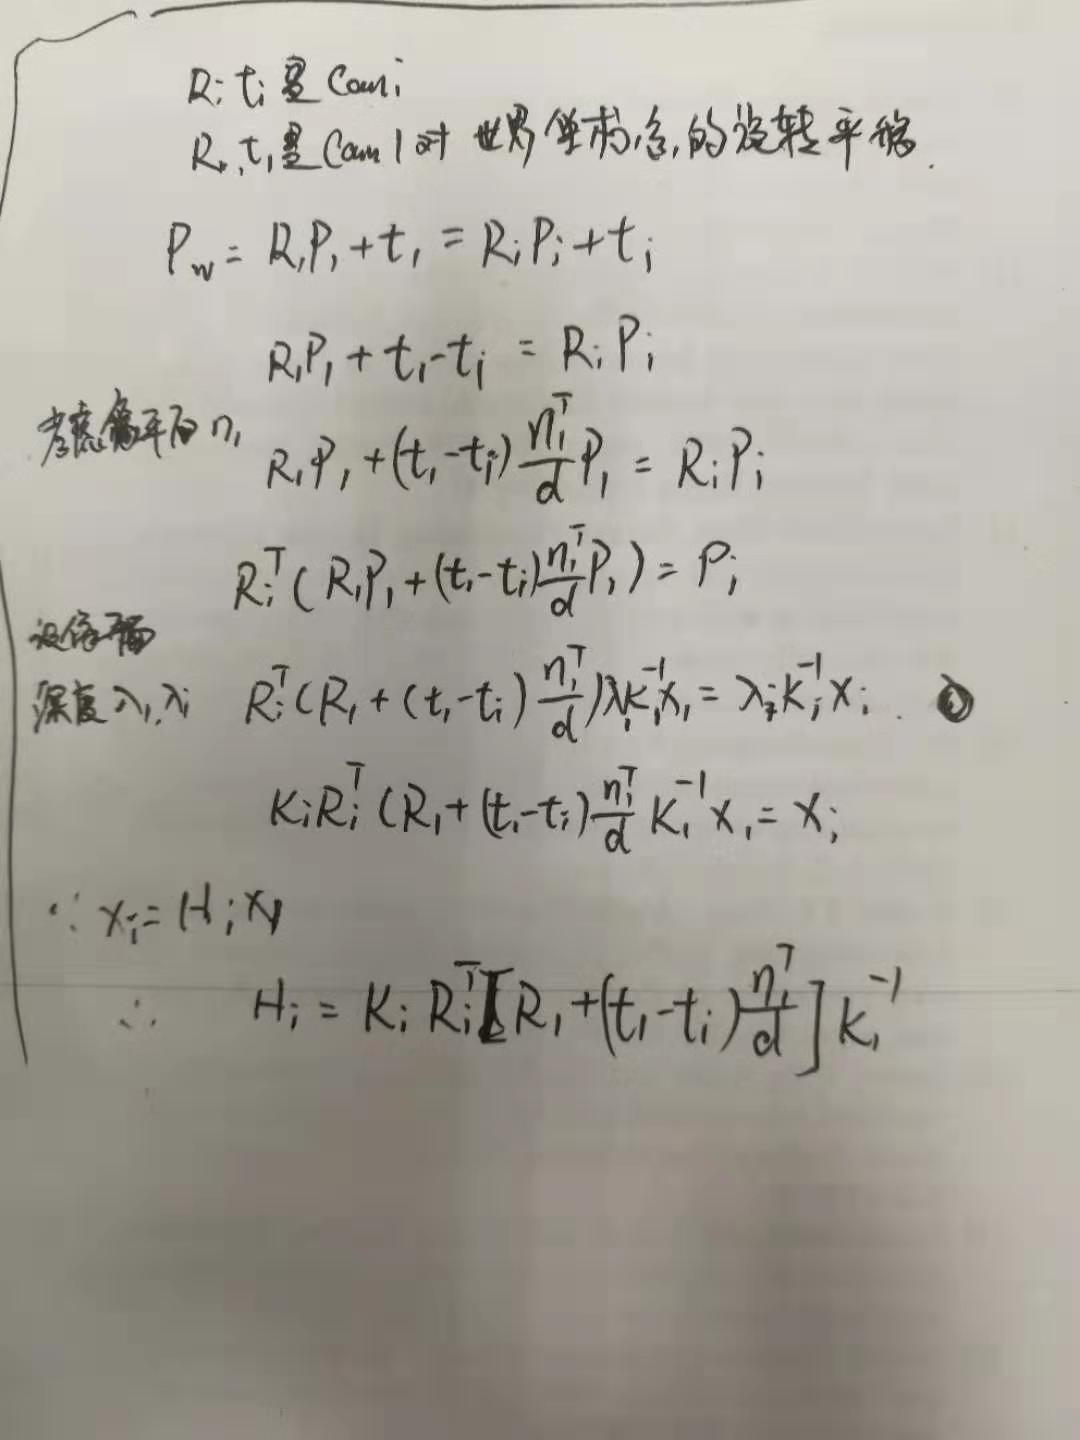 Rᵢ tᵢ是Cam i
R₁, t₁是Cam 1 对 世界坐标系的旋转平移.
P_w = R₁P₁ + t₁ = RᵢPᵢ + tᵢ
R₁P₁ + t₁ - tᵢ = RᵢPᵢ
考虑像平面 n₁
R₁P₁ + (t₁ - tᵢ) n₁ᵀ/d P₁ = RᵢPᵢ
Rᵢᵀ ( R₁P₁ + (t₁ - tᵢ) n₁ᵀ/d P₁ ) = Pᵢ
设像平面
深度 λ₁, λᵢ Rᵢᵀ (R₁ + (t₁ - tᵢ) n₁ᵀ/d ) λ₁K₁⁻¹x₁ = λᵢKᵢ⁻¹xᵢ.
KᵢRᵢᵀ (R₁ + (t₁ - tᵢ) n₁ᵀ/d K₁⁻¹ x₁ = xᵢ
∵ xᵢ = Hᵢ x₁
∴ Hᵢ = Kᵢ Rᵢᵀ [ R₁ + (t₁ - tᵢ) n₁ᵀ/d ] K₁⁻¹